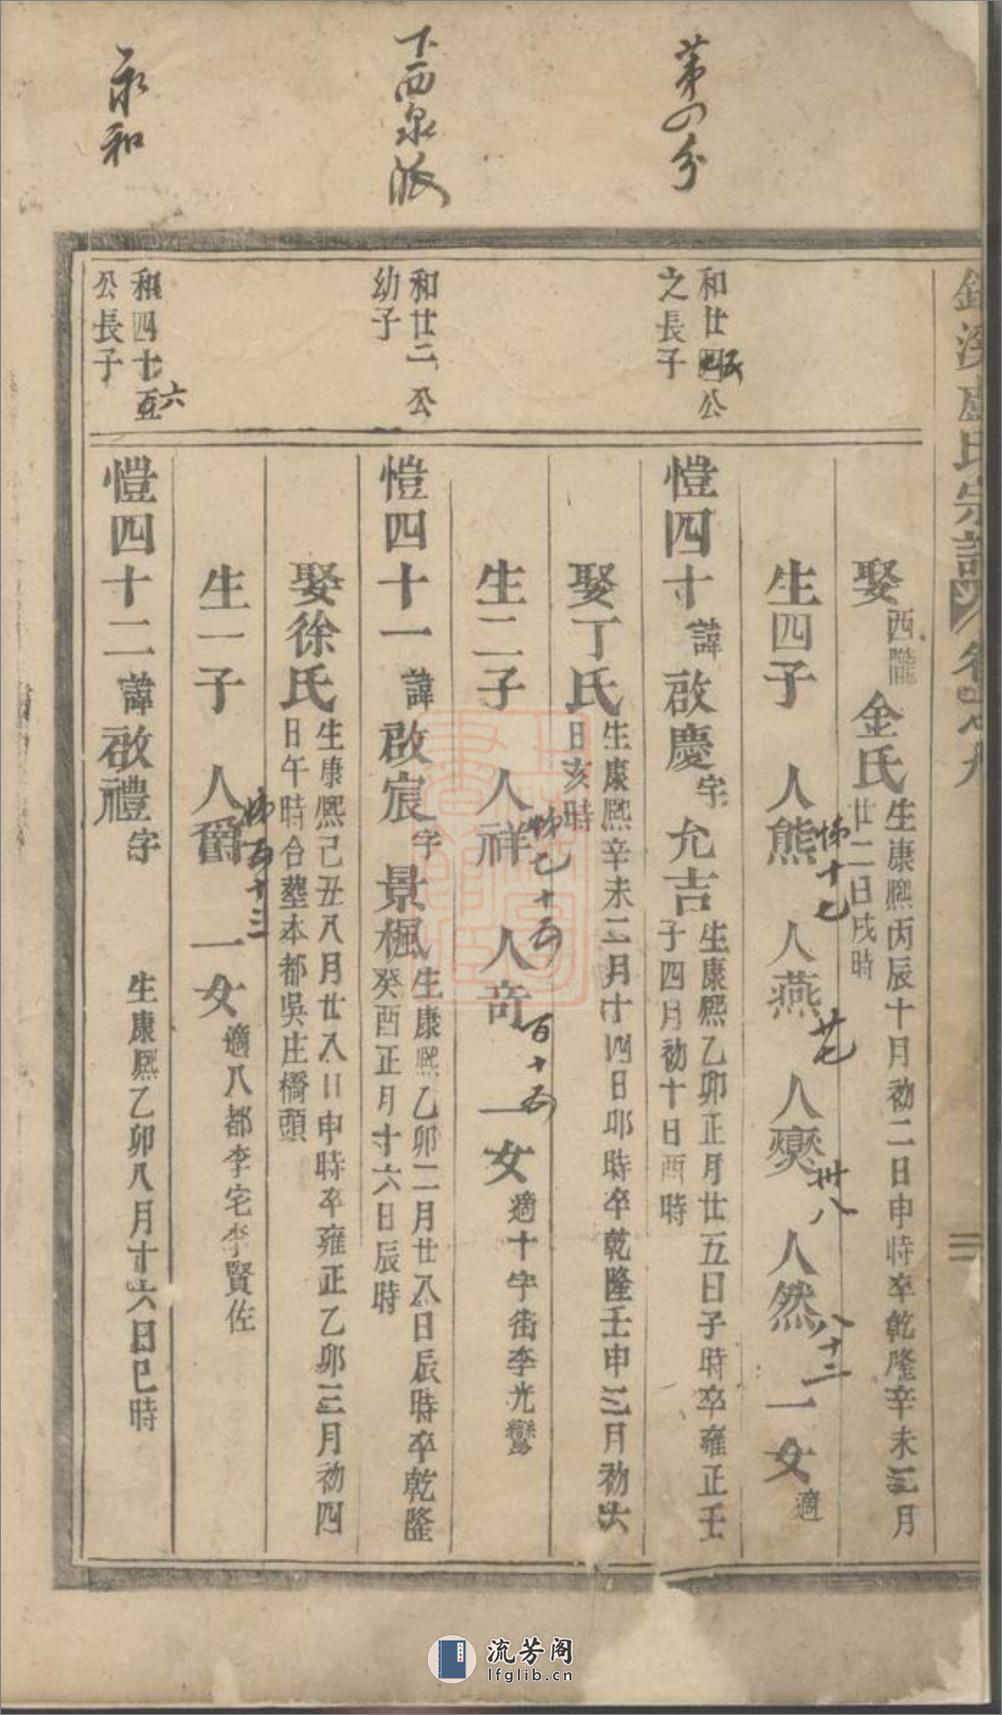 第四分
下西泉派
永和
盧氏宗譜
娶西隴金氏生康熙丙辰十月初二日申時卒乾隆辛未三月
廿二日戌時
生四子 人熊 人燕 人爕 人然 一女適
悌十七
廿七
卅八
八十二
和廿四五公
之長子
愷四十諱啟慶字允吉生康熙乙卯正月廿五日子時卒雍正壬
子四月初十日酉時
娶丁氏生康熙辛未二月十四日卯時卒乾隆壬申三月初六
日亥時
生二子 人祥 人奇 一女適十字街李光鸞
百十五
和廿二公
幼子
愷四十一諱啟宸字景楓生康熙乙卯二月廿八日辰時卒乾隆
癸酉正月十六日辰時
娶徐氏生康熙己丑八月廿八日申時卒雍正乙卯三月初四
日午時合塟本都吳庄橋頭
生一子 人爵 一女適八都李宅李賢佐
悌百十三
和四十五六
公長子
愷四十二諱啟禮字 生康熙乙卯八月十六日巳時
流芳阁
lfglib.cn